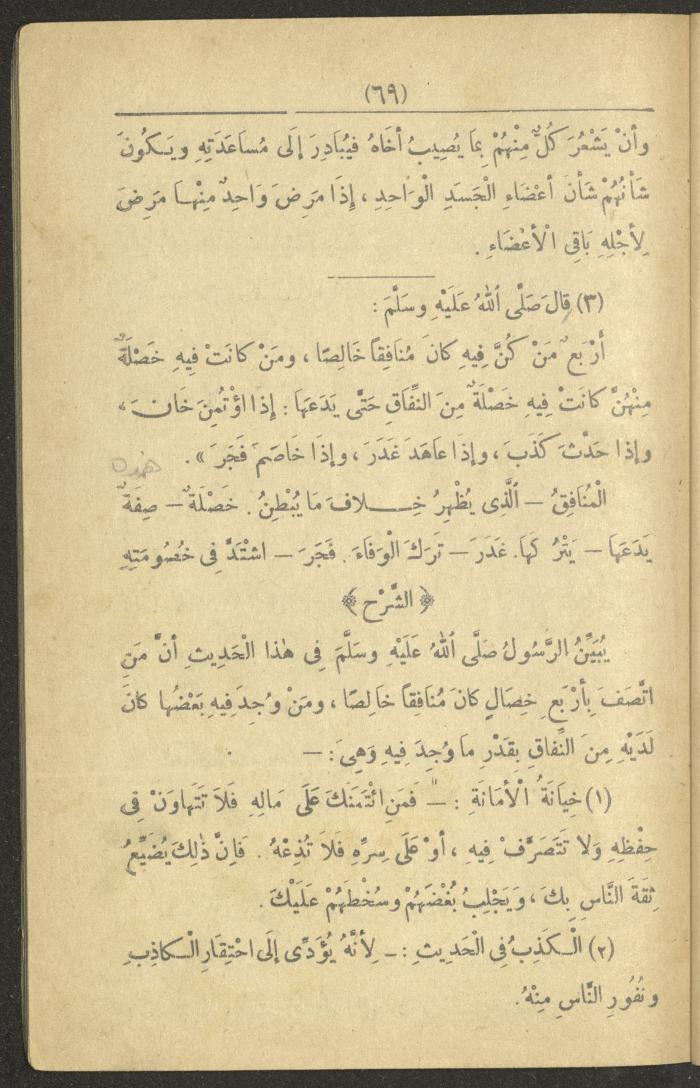 (٦٩)
وأنْ يَشْعُرَ كُلٌّ مِنْهُمْ بِمَا يُصِيبُ أخَاهُ فيُبَادِرَ إلَى مُسَاعَدَتِهِ ويَكُونَ
شَأنُهُمْ شَأنَ أعْضَاءِ الْجَسَدِ الْوَاحِدِ ، إِذَا مَرِضَ وَاحِدٌ مِنْهَا مَرِضَ
لِأجْلِهِ بَاقِى الْأعْضَاءِ .
(٣) قالَ صَلَّى ٱللهُ عَلَيْهِ وسَلَّمَ :
أَرْبَعٌ مَنْ كُنَّ فِيهِ كانَ مُنَافِقاً خَالِصًا ، ومَنْ كانَتْ فِيهِ خَصْلَةٌ
مِنْهُنَّ كانَتْ فِيهِ خَصْلَةٌ مِنَ النِّفَاقِ حَتَّى يَدَعَهَا : إِذا اؤْتُمِنَ خَانَ ،
وإذا حَدَّثَ كَذَبَ ، وإذَا عاهَدَ غَدَرَ ، وإذَا خَاصَمَ فَجَرَ » .
الْمُنَافِقُ – ٱلَّذِى يُظْهِرُ خِلافَ مَا يُبْطِنُ . خَصْلَةٌ – صِفَةٌ
يَدَعَهَا – يَتْرُكَهَا . غَدَرَ – تَرَكَ الْوَفَاءَ . فَجَرَ – اشْتَدَّ فِى خُصُومَتِهِ
﴿ الشَّرْح ﴾
يُبَيِّنُ الرَّسُولُ صَلَّى ٱللهُ عَلَيْهِ وسَلَّمَ فِى هٰذا الْحَدِيثِ أنَّ مَنِ
اتَّصَفَ بِأرْبَعِ خِصَالٍ كانَ مُنَافِقاً خَالِصًا ، ومَنْ وُجِدَ فِيهِ بَعْضُها كانَ
لَدَيْهِ مِنَ النِّفاقِ بِقَدْرِ ما وُجِدَ فِيهِ وَهِىَ : –
(١) خِيَانَةُ الْأمَانَةِ : – فَمَنِ ائْتَمَنَكَ عَلَى مَالِهِ فَلَا تَتَهاوَنْ فِى
حِفْظِهِ وَلا تَتَصَرَّفْ فِيهِ ، أوْ عَلَى سِرِّهِ فَلَا تُذِعْهُ . فَإِنَّ ذٰلِكَ يُضَيِّعُ
ثِقَةَ النَّاسِ بِكَ ، وَيَجْلِبُ بُغْضَهُمْ وسُخْطَهُمْ عَلَيْكَ .
(٢) الْكَذِبُ فِى الْحَدِيثِ : – لِأنَّهُ يُؤَدِّى إلَى احْتِقَارِ الْكاذِبِ
ونُفُورِ النَّاسِ مِنْهُ .